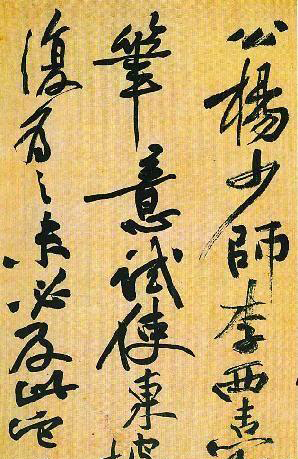 公楊少師李西臺
筆意試使東坡
復為之未必及此它